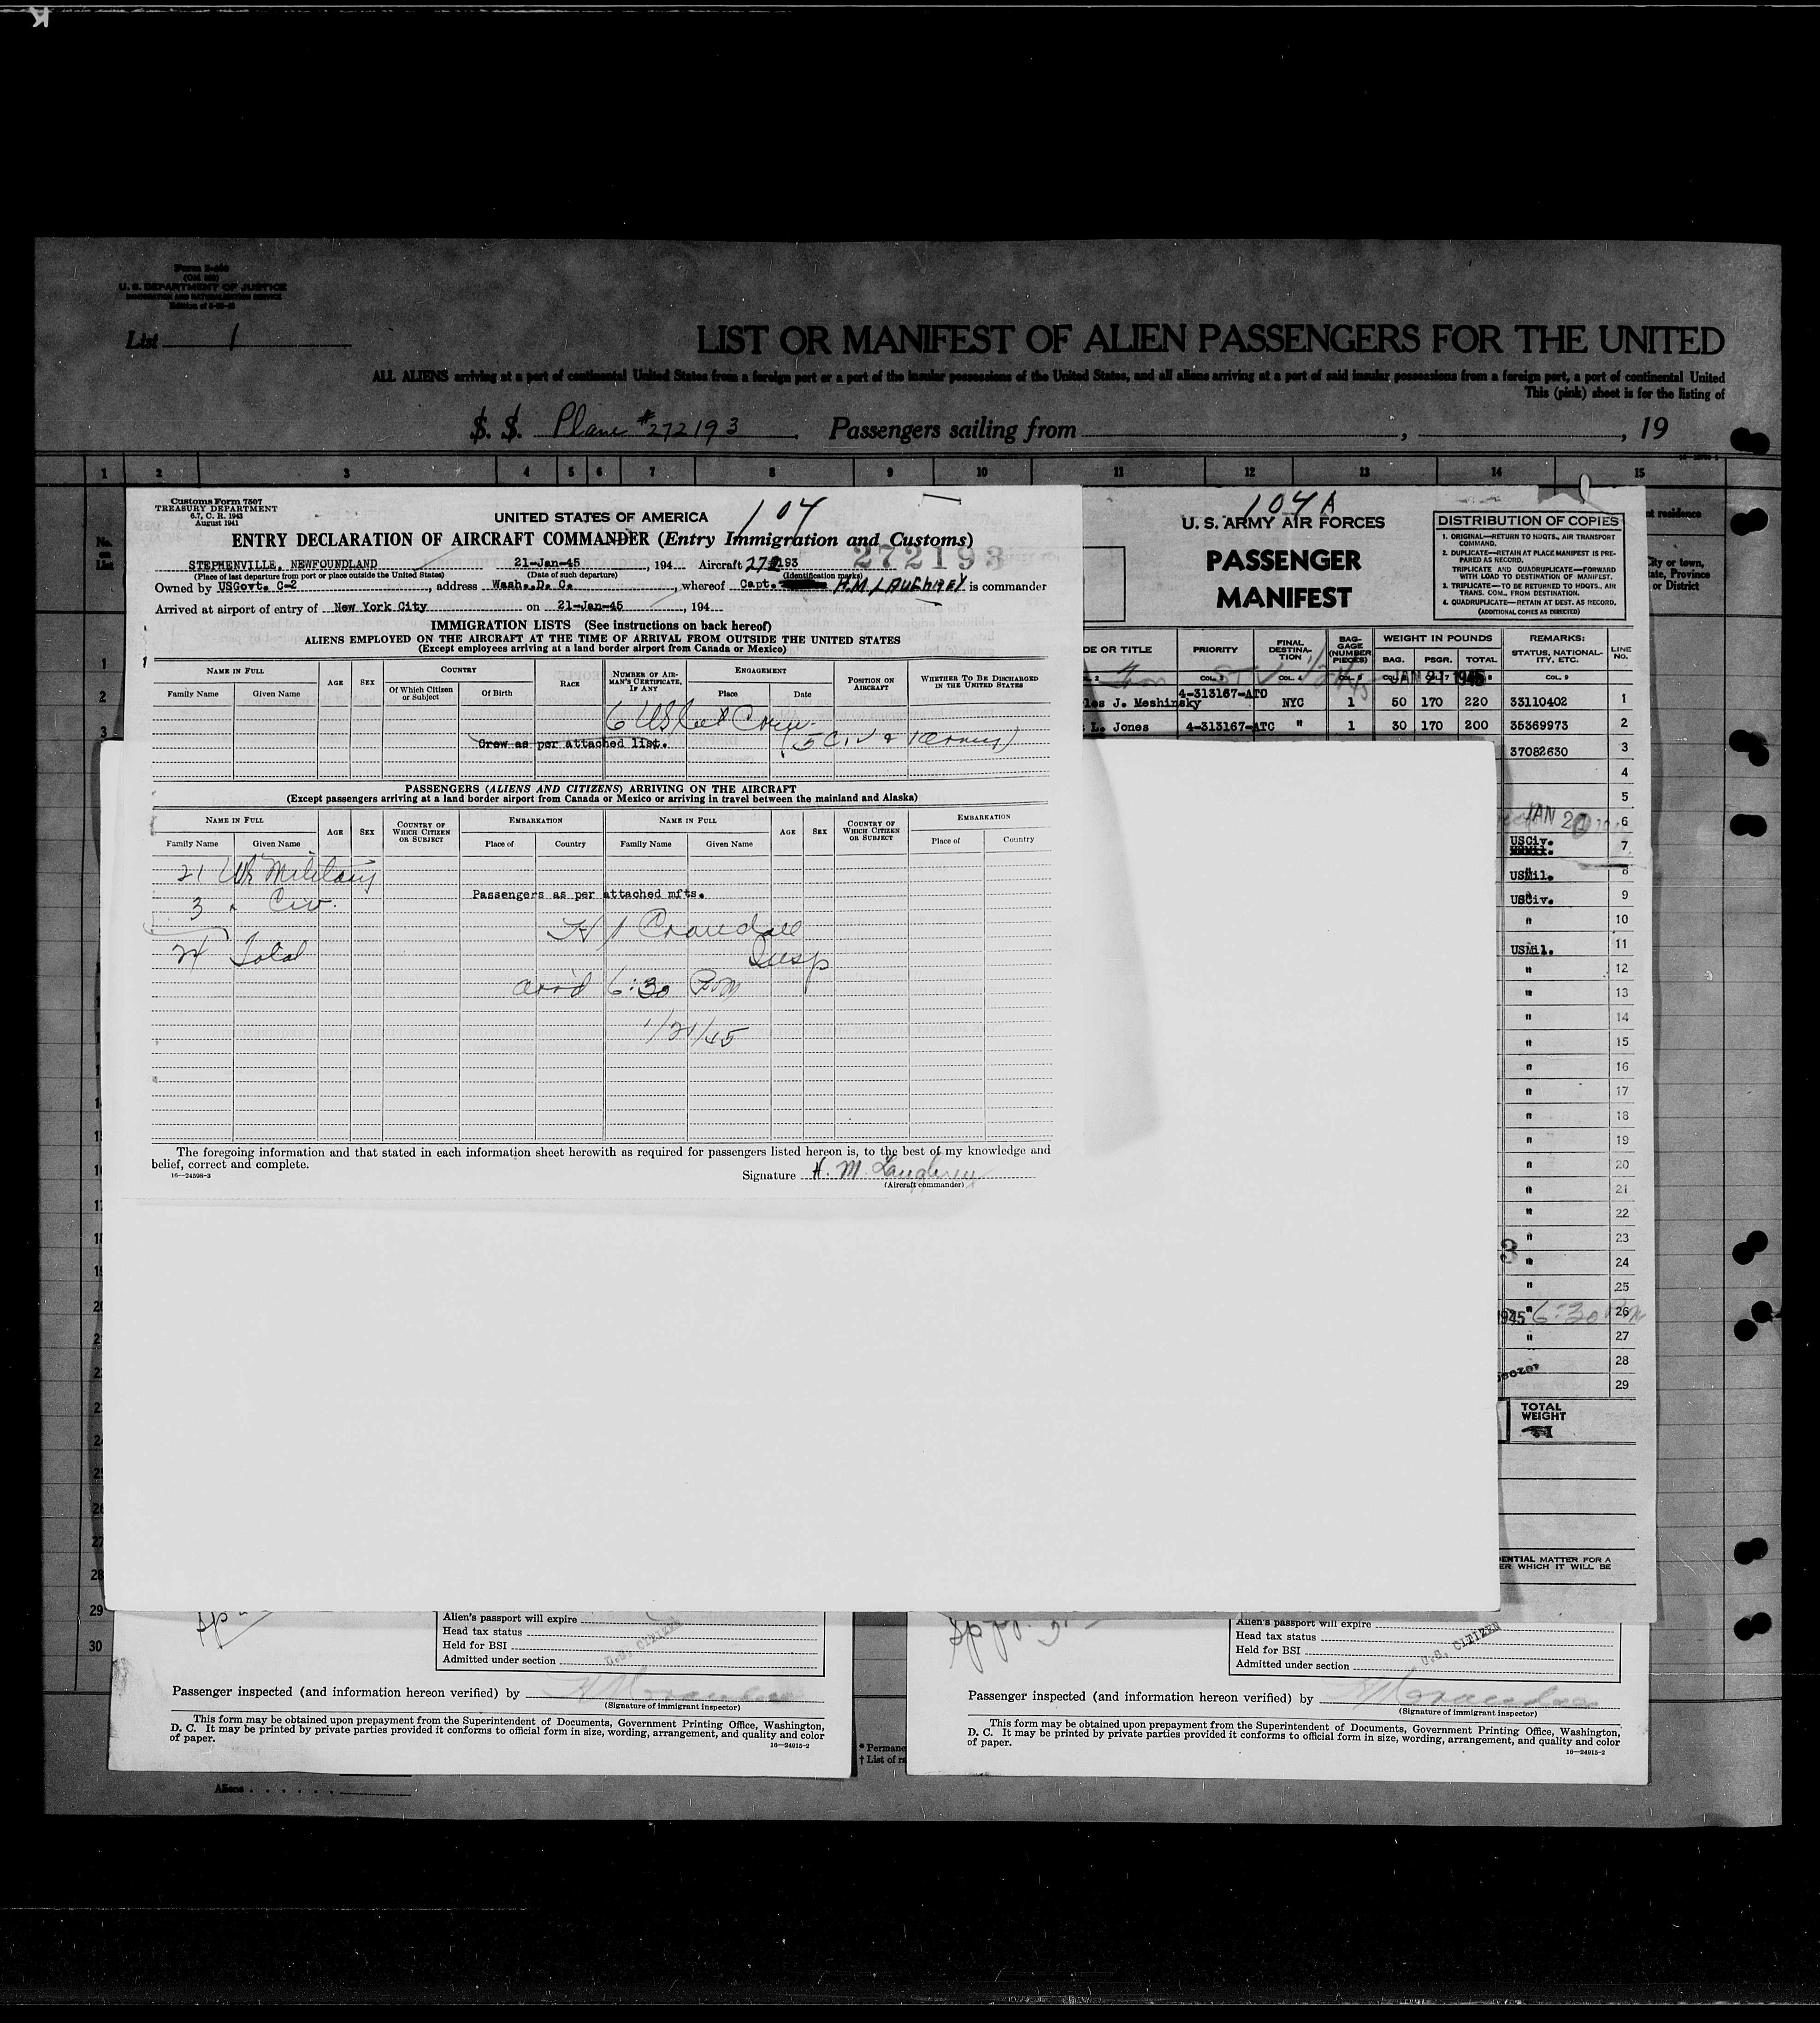 Form I-460
U. S. DEPARTMENT OF JUSTICE
IMMIGRATION AND NATURALIZATION SERVICE
List 1
LIST OR MANIFEST OF ALIEN PASSENGERS FOR THE UNITED
ALL ALIENS arriving at a port of continental United States from a foreign port or a port of the insular possessions of the United States, and all aliens arriving at a port of said insular possessions from a foreign port, a port of continental United
This (pink) sheet is for the listing of
S. S. Plane #272193 Passengers sailing from , , 19
1 2 3 4 5 6 7 8 9 10 11 12 13 14 15
No. on List
Customs Form 7507
TREASURY DEPARTMENT
6.7, C. R. 1943
August 1941
104
UNITED STATES OF AMERICA
ENTRY DECLARATION OF AIRCRAFT COMMANDER (Entry Immigration and Customs)
272193
STEPHENVILLE, NEWFOUNDLAND 21-Jan-45, 194 Aircraft 272193
(Place of last departure from port or place outside the United States) (Date of such departure) (Identification marks)
Owned by USGovt. C-2, address Wash. D. C., whereof Capt. H.M LAUGHREY is commander
Arrived at airport of entry of New York City on 21-Jan-45, 194
IMMIGRATION LISTS (See instructions on back hereof)
ALIENS EMPLOYED ON THE AIRCRAFT AT THE TIME OF ARRIVAL FROM OUTSIDE THE UNITED STATES
(Except employees arriving at a land border airport from Canada or Mexico)
NAME IN FULL AGE SEX COUNTRY RACE NUMBER OF AIRMAN'S CERTIFICATE, IF ANY ENGAGEMENT POSITION ON AIRCRAFT WHETHER TO BE DISCHARGED IN THE UNITED STATES
Family Name Given Name Of Which Citizen or Subject Of Birth Place Date
6 US Cit Crew
Crew as per attached list. (5 Civ & 1 Army)
PASSENGERS (ALIENS AND CITIZENS) ARRIVING ON THE AIRCRAFT
(Except passengers arriving at a land border airport from Canada or Mexico or arriving in travel between the mainland and Alaska)
NAME IN FULL AGE SEX COUNTRY OF WHICH CITIZEN OR SUBJECT EMBARKATION NAME IN FULL AGE SEX COUNTRY OF WHICH CITIZEN OR SUBJECT EMBARKATION
Family Name Given Name Place of Country Family Name Given Name Place of Country
21 US Military
3 " Civ.
Passengers as per attached mfts.
24 Total
H J Crandall
Insp
arr'd 6:30 P.M
1/21/45
The foregoing information and that stated in each information sheet herewith as required for passengers listed hereon is, to the best of my knowledge and
belief, correct and complete.
16—24598-3
Signature H. M. Laughrey
(Aircraft commander)
104A
U. S. ARMY AIR FORCES
PASSENGER
MANIFEST
DISTRIBUTION OF COPIES
1. ORIGINAL—RETURN TO HDQTS., AIR TRANSPORT COMMAND.
2. DUPLICATE—RETAIN AT PLACE MANIFEST IS PREPARED AS RECORD.
TRIPLICATE AND QUADRUPLICATE—FORWARD WITH LOAD TO DESTINATION OF MANIFEST.
3. TRIPLICATE—TO BE RETURNED TO HDQTS., AIR TRANS. COM., FROM DESTINATION.
4. QUADRUPLICATE—RETAIN AT DEST. AS RECORD.
(ADDITIONAL COPIES AS DIRECTED)
nt residence
City or town, ate, Province or District
DE OR TITLE PRIORITY FINAL DESTINATION BAGGAGE (NUMBER PIECES) WEIGHT IN POUNDS REMARKS: STATUS, NATIONALITY, ETC. LINE NO.
BAG. PSGR. TOTAL
COL. 3 COL. 4 COL. 9
les J. Meshinsky 4-313167-ATC NYC 1 50 170 220 33110402 1
L. Jones 4-313167-ATC " 1 30 170 200 35369973 2
37082630 3
4
5
JAN 2 6
USCiv. 7
USMil. 8
USCiv. 9
" 10
USMil. 11
" 12
" 13
" 14
" 15
" 16
" 17
" 18
" 19
" 20
" 21
" 22
" 23
" 24
" 25
1945 6:30 PM " 26
" 27
28
29
TOTAL WEIGHT
DENTIAL MATTER FOR A
ER WHICH IT WILL BE
29
30
Alien's passport will expire
Head tax status
Held for BSI
Admitted under section
U.S. CITIZEN
Passenger inspected (and information hereon verified) by
(Signature of immigrant inspector)
This form may be obtained upon prepayment from the Superintendent of Documents, Government Printing Office, Washington,
D. C. It may be printed by private parties provided it conforms to official form in size, wording, arrangement, and quality and color
of paper.
16—24915-2
Aliens
* Permane
† List of ra
Alien's passport will expire
Head tax status
Held for BSI
Admitted under section
U.S. CITIZEN
Passenger inspected (and information hereon verified) by
(Signature of immigrant inspector)
This form may be obtained upon prepayment from the Superintendent of Documents, Government Printing Office, Washington,
D. C. It may be printed by private parties provided it conforms to official form in size, wording, arrangement, and quality and color
of paper.
16—24915-2